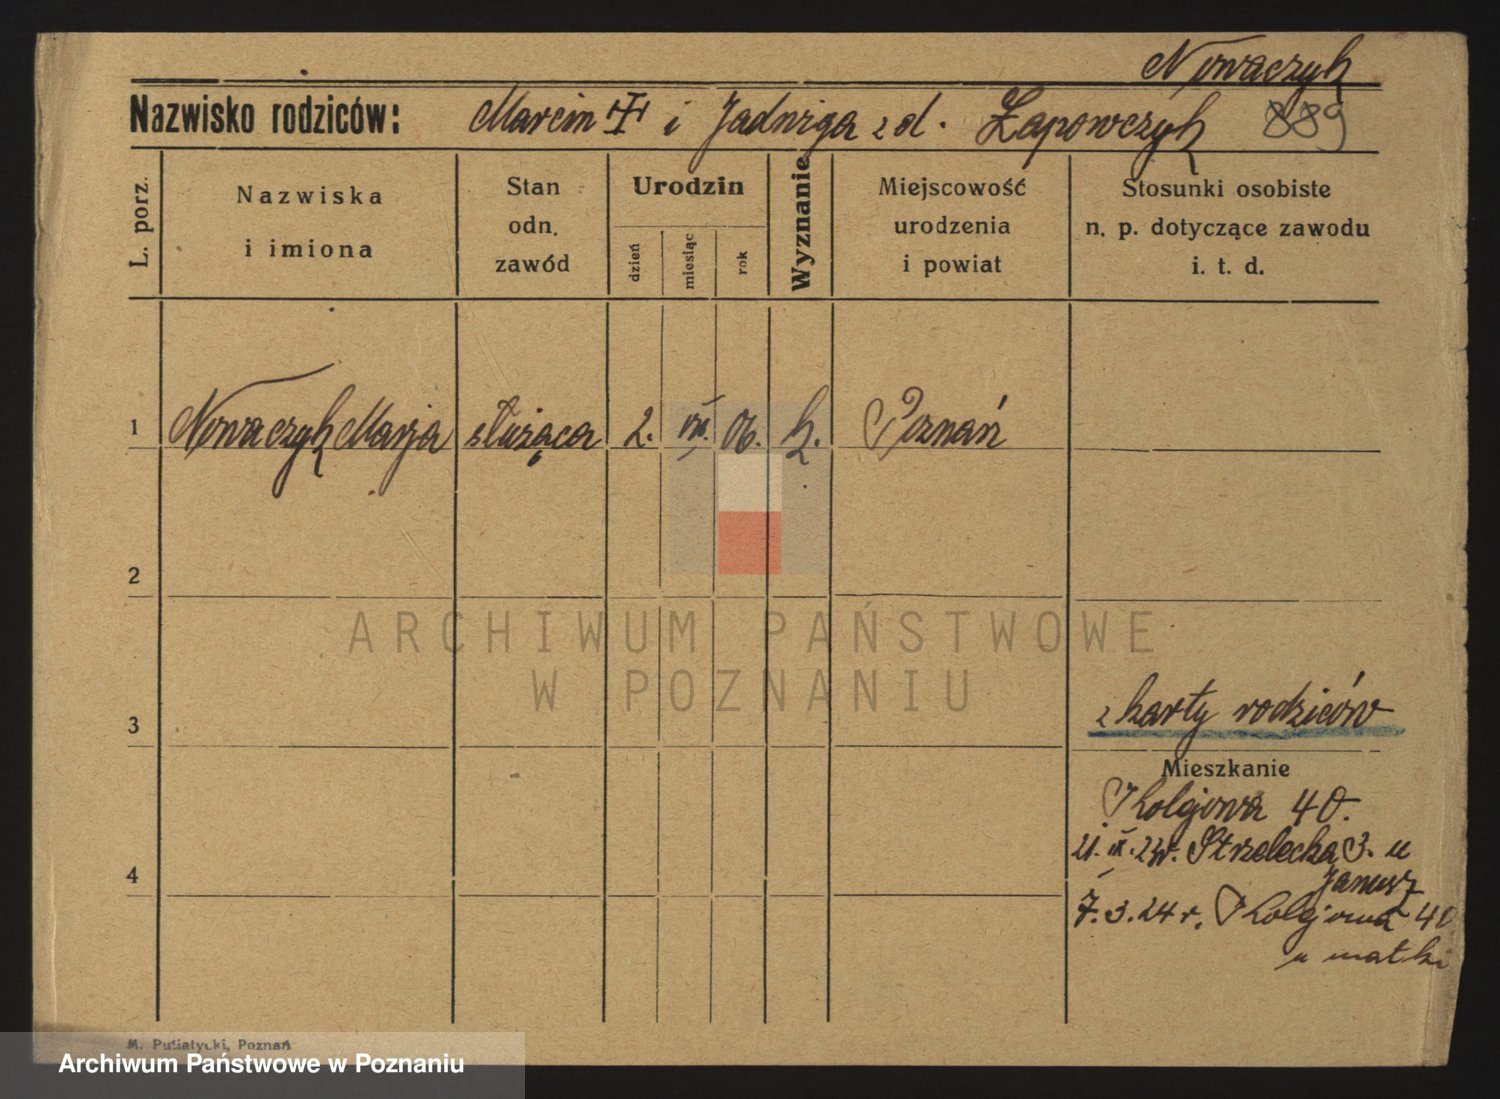 Nowaczyk
Nazwisko rodziców: Marcin i Jadwiga z d. Łapowczyk 889
L. porz.
Nazwiska
i imiona
Stan
odn.
zawód
Urodzin
dzień
miesiąc
rok
Wyznanie
Miejscowość
urodzenia
i powiat
Stosunki osobiste
n. p. dotyczące zawodu
i. t. d.
1 Nowaczyk Marja służąca 2. 06. k. Poznań
2
ARCHIWUM PAŃSTWOWE
W POZNANIU
3
z karty rodziców
Mieszkanie
Kolejowa 40.
21. Strzelecka 3. u
Janusz
4
7.3.24 r. Kolejowa 40
u matki
M. Putiatycki, Poznań
Archiwum Państwowe w Poznaniu